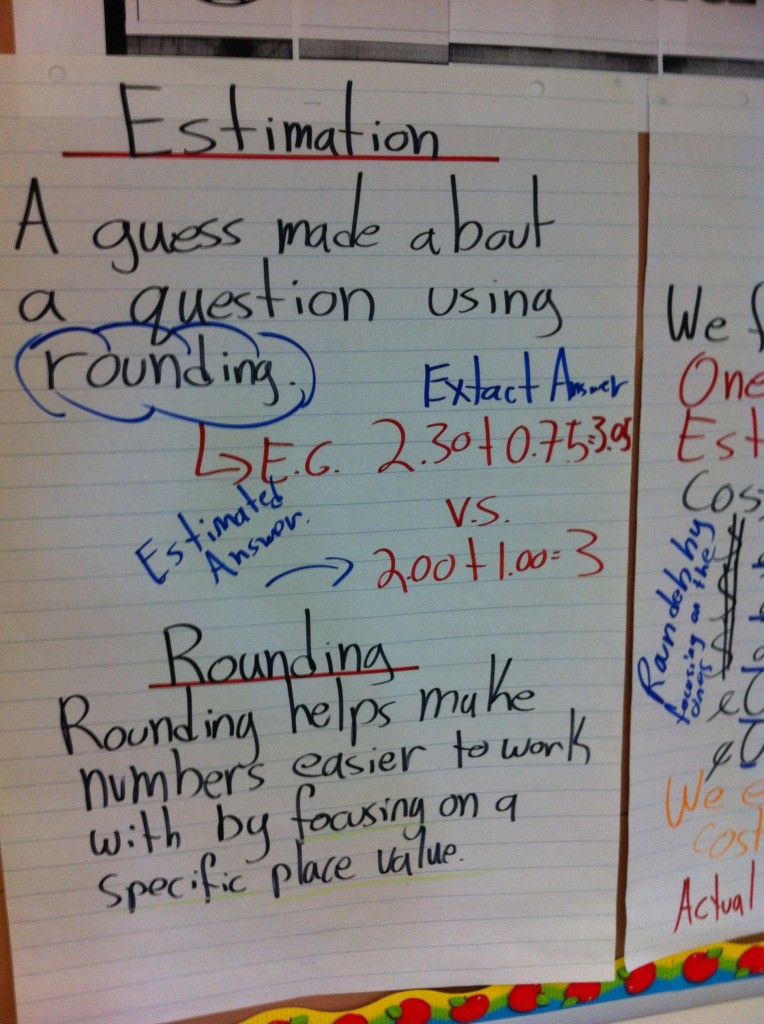 Estimation
A guess made about
a question using
rounding.
Extact Answer
↳ E.G. 2.30+0.75=3.05
Estimated
Answer.
v.s.
2.00+1.00=3
Rounding
Rounding helps make
numbers easier to work
with by focusing on a
specific place value.
We f
One
Est
Cos
focusing on the
ones
We e
cost
Actual